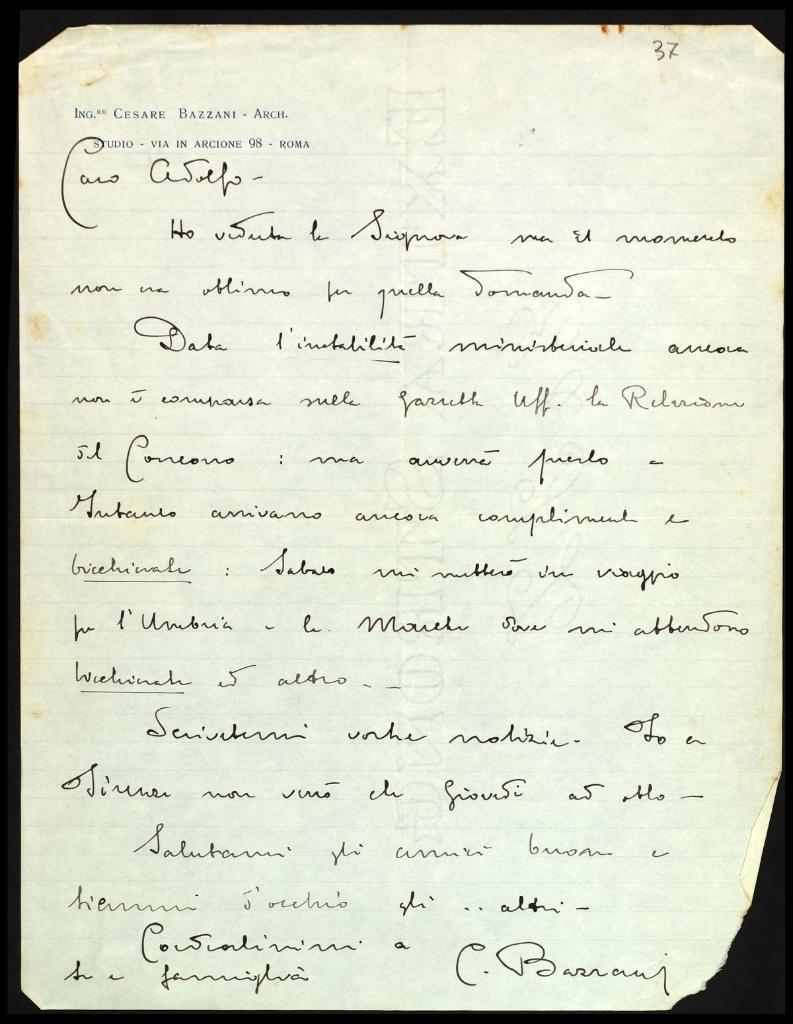 37
ING.RE CESARE BAZZANI - ARCH.
STUDIO - VIA IN ARCIONE 98 - ROMA
Caro Adolfo -
Ho veduta la Signora ma il momento
non era ottimo per quella domanda -
Data l'instabilità ministeriale ancora
non è comparsa sulla Gazzetta Uff. la Relazione
del Concorso : ma avverrà presto -
Intanto arrivano ancora complimenti e
bicchierate : Sabato mi metterò in viaggio
per l'Umbria e le Marche dove mi attendono
bicchierate ed altro - -
Scrivetemi vostre notizie - Io a
Firenze non verrò che Giovedì ad otto -
Salutami gli amici buoni e
tiemmi d'occhio gli .. altri -
Cordialissimi a
te e famiglia
C. Bazzani